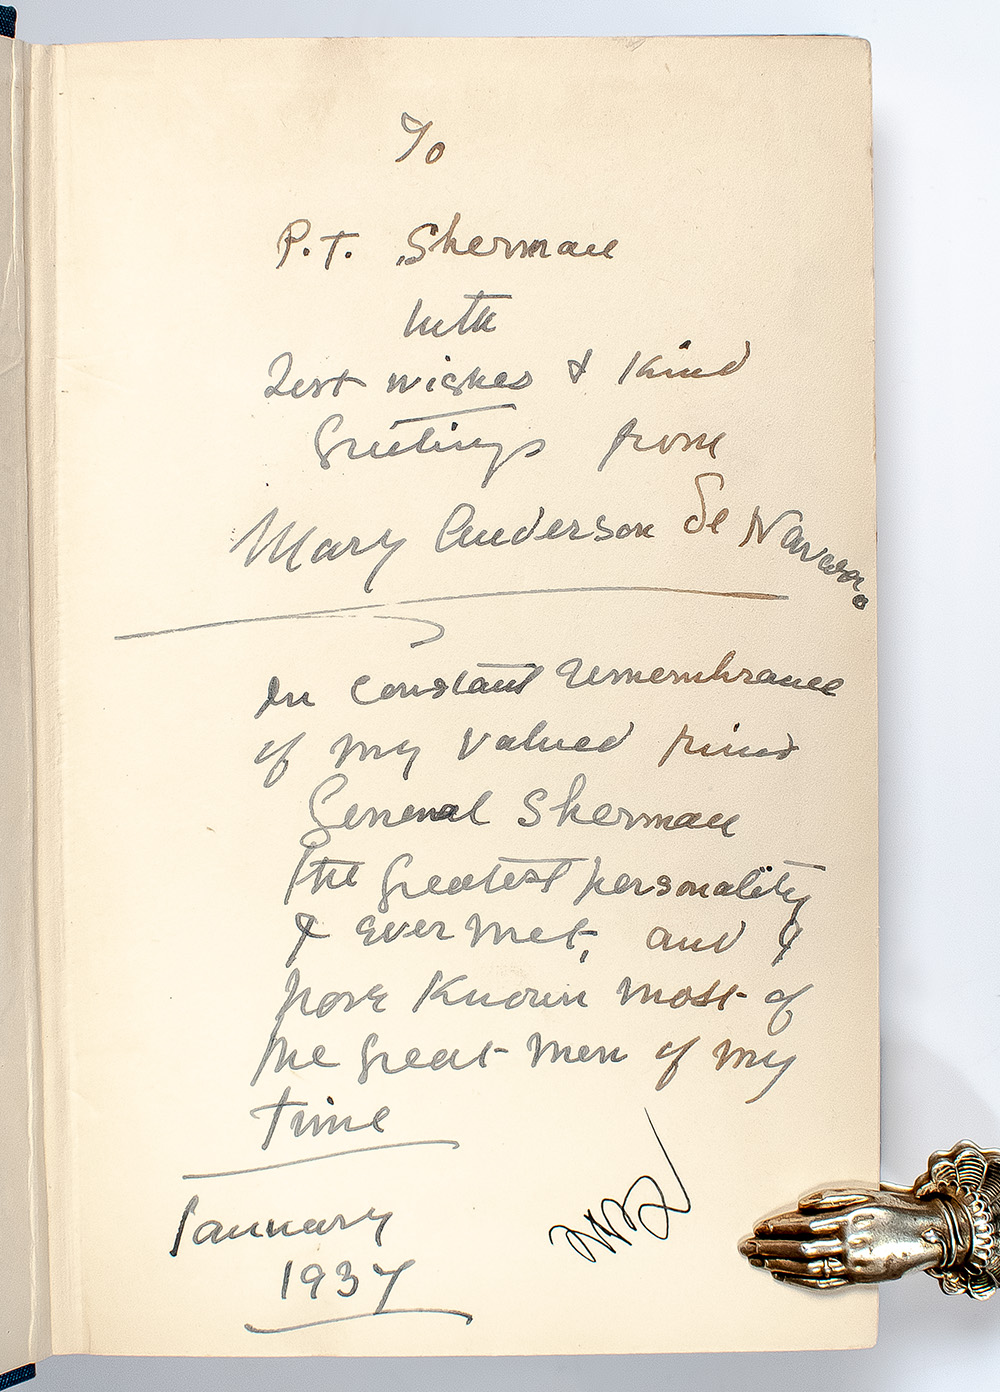 To
P.T. Sherman
with
Best wishes & Kind
Greetings from
Mary Anderson de Navarro.
In constant remembrance
of my valued friend
General Sherman
the greatest personality
I ever met, and I
have known most of
the great men of my
time
January
1937